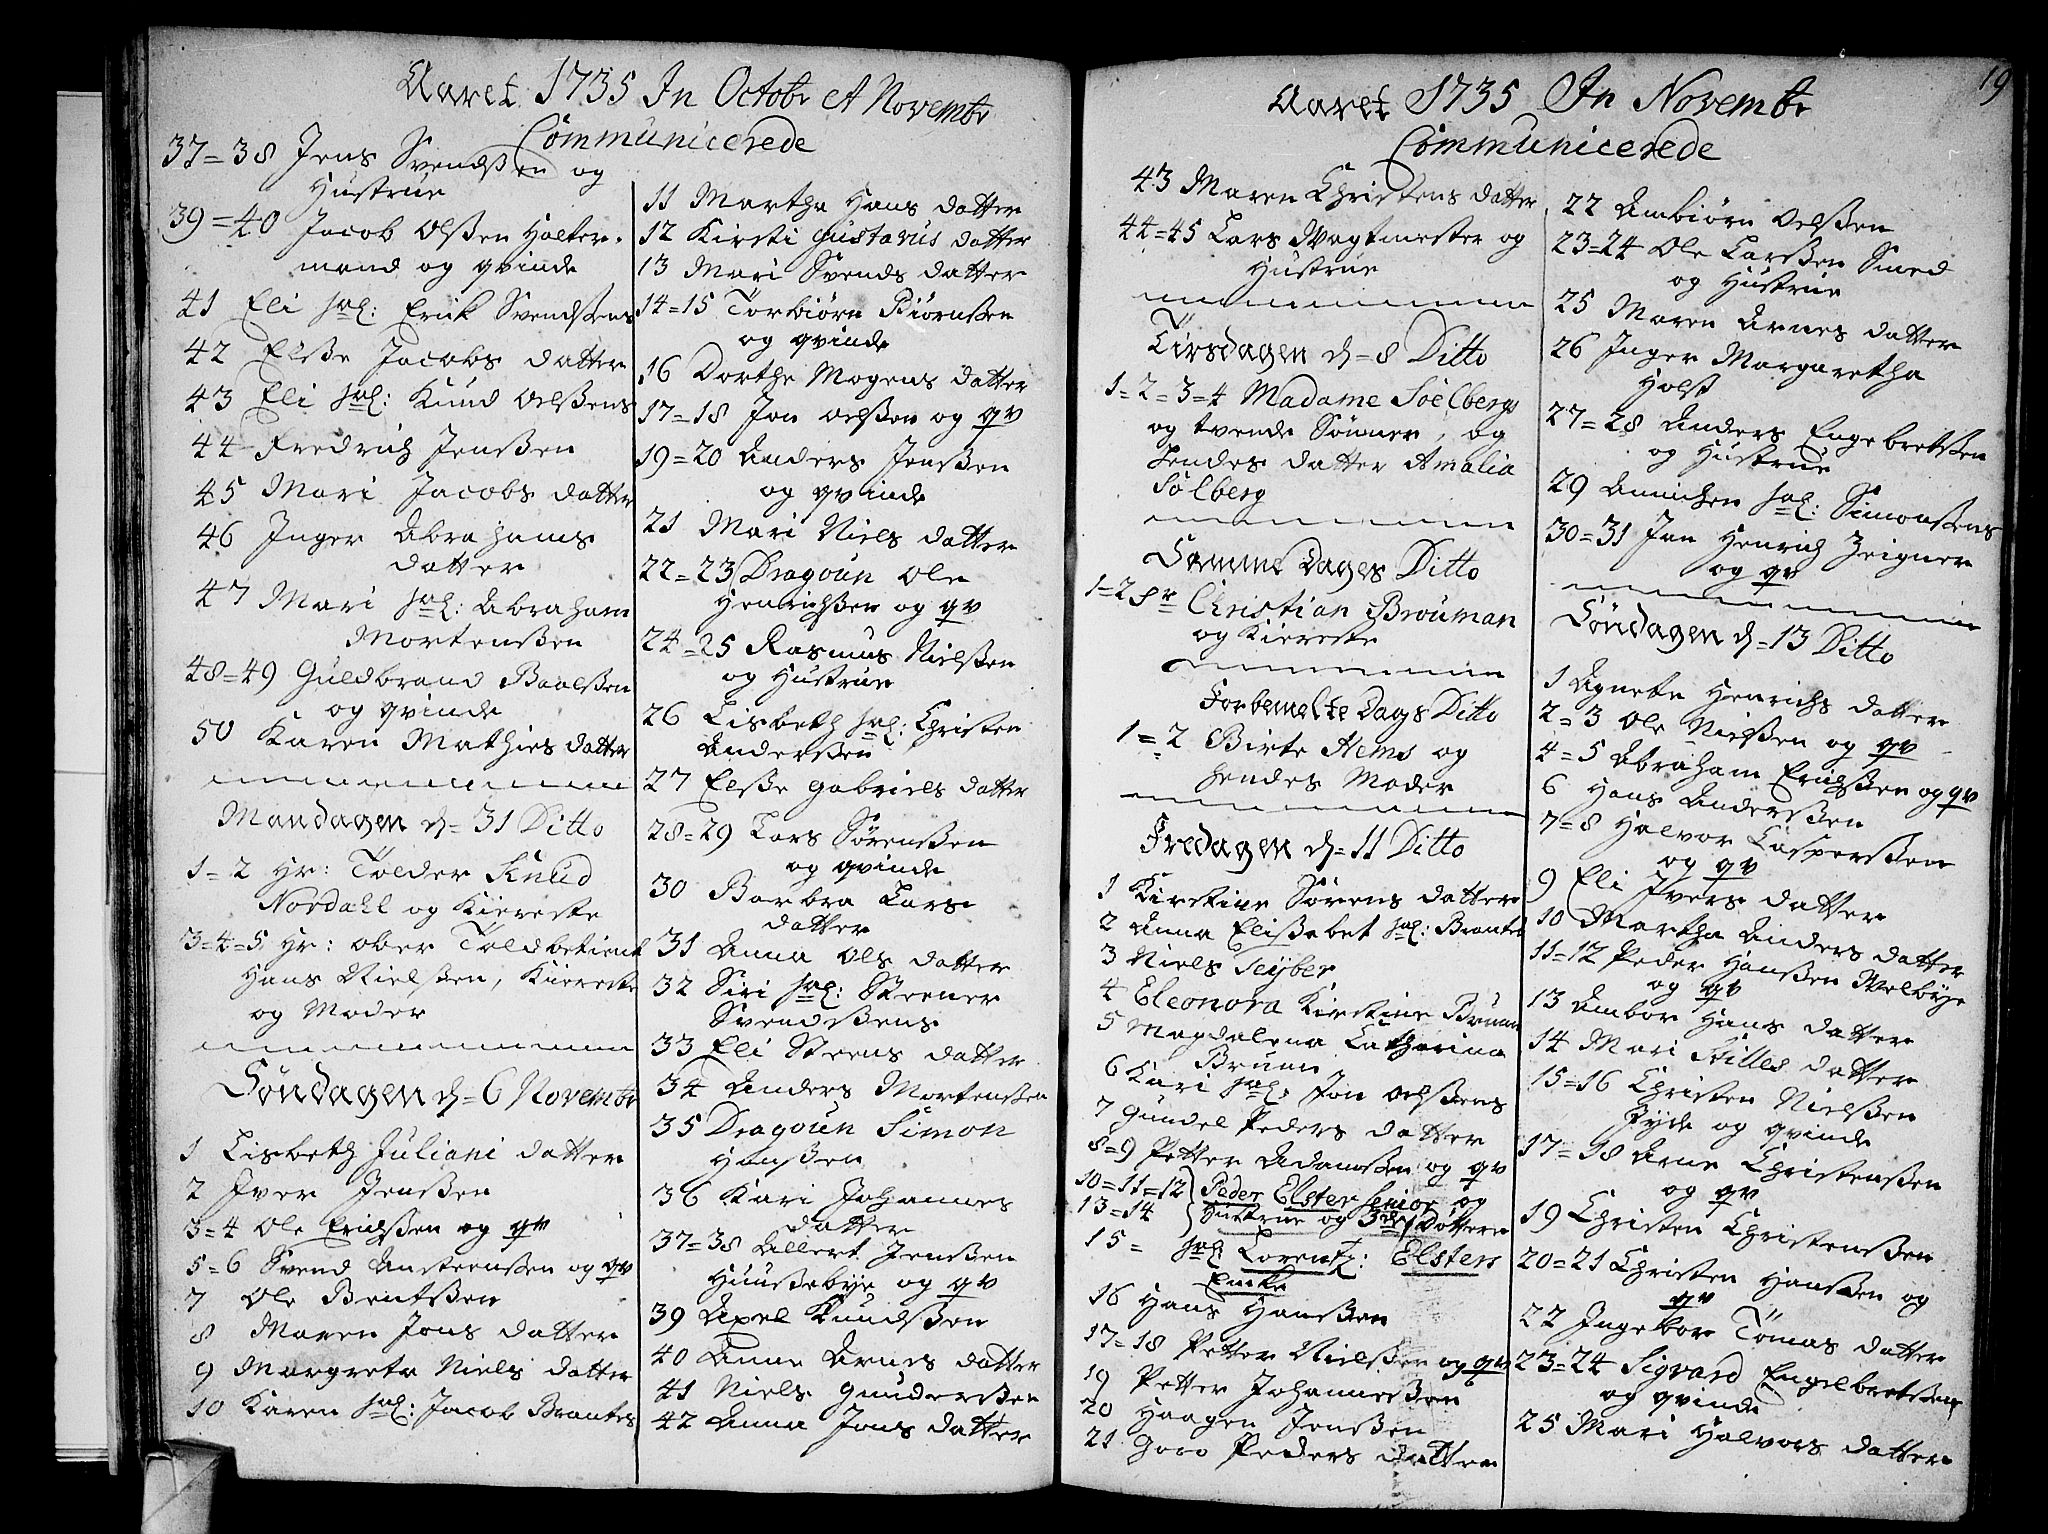 Aaret 1735 In Octobr et Novembr
Communicerede
37=38 Jens Svendsßen og
Hustrue
39=40 Jacob Olßen Holter-
mand og qvinde
41 Eli sal: Erick Svendsens
42 Elße Jacobs datter
43 Eli sal: Knud Oelßens
44 Fredrich Jenßen
45 Mari Jacobs datter
46 Inger Abrahams
datter
47 Mari sal: Abraham
Mortenßen
48=49 Guldbrand Baalßen
og qvinde
50 Karen Mathies datter
Mandagen d= 31 Ditto
1=2 Hr: Tolder Knud
Nordahl og Kiereste
3=4=5 Hr: ober Toldbetient
Hans Nielsßen, Kiereste
og Moder
Søndagen d= 6 Novembr
1 Lisbeth Juliani datter
2 Iver Jenßen
3=4 Ole Erichßen og qv
5=6 Svend Ansteenßen og qv
7 Ole Bentßen
8 Maren Jons datter
9 Margrete Niels datter
10 Karen sal: Jacob Brantes
11 Martha Hans datter
12 Kirsti Gustavus datter
13 Mari Svends datter
14=15 Torbiørn Biørnßen
og qvinde
16 Dorthe Mogens datter
17=18 Jon Oelßen og qv
19=20 Anders Jenßen
og qvinde
21 Mari Niels datter
22=23 Dragoun Ole
Henrichßen og qv
24=25 Rasmus Nielßen
og Hustrue
26 Lisbeth sal: Christen
Anderßen
27 Elße Gabriels datter
28=29 Lars Sørenßen
og qvinde
30 Barbra Lars
datter
31 Anna Ols datter
32 Siri sal: Steener
Svendßens
33 Eli Steens datter
34 Anders Mortenßen
35 Dragoun Simon
Hanßen
36 Kari Johannes
datter
37=38 Allert Jenßen
Huusebye og qv
39 Axel Knudßen
40 Anne Arnes datter
41 Niels Gunderßen
42 Anna Jons datter
19
Aaret 1735 In Novembr
Communicerede
43 Maren Christens datter
44=45 Lars Wagtmester og
Hustrue
Tirsdagen d= 8 Ditto
1=2=3=4 Madame Soelbergs
og tvende Sønner, og
hendes datter Amalia
Sølberg
Samme Dages Ditto
1=2 Hr Christian Brouman
og Kiereste
Forbemelte Dags Ditto
1=2 Birte Hems og
hendes Moder
Fredagen d= 11 Ditto
1 Kirstine Sørens datter
2 Anna Elißabet sal: Brantes
3 Niels Seyber
4 Eleonora Kirstine Bruun
5 Magdalena Catharina
Bruun
6 Kari sal: Jon Oelßens
7 Gundel Peders datter
8=9 Petter Adamßen og qv
10=11=12 Peder Elster Senior og
13=14 Hustrue og 3de Døttere
15= sal: Lorentz: Elsters
Encke
16 Hans Hanßen
17=18 Petter Nielßen og qv
19 Petter Johanneßen
20 Haagen Jenßen
21 Goro Peders datter
22 Ambiørn Oelßen
23=24 Ole Larßen Smed
og Hustrue
25 Maren Arnes datter
26 Inger Margaretha
Holst
27=28 Anders Engebretßen
og Hustrue
29 Annichen sal: Simonßens
30=31 Jan Henrich Zeigner
og qv
Søndagen d= 13 Ditto
1 Agnete Henrichs datter
2=3 Ole Nielßen og qv
4=5 Abraham Erichßen og qv
6 Hans Anderßen
7=8 Halvor Casperßen
og qv
9 Eli Ivers datter
10 Martha Anders datter
11=12 Peder Hanßen Welbye
og qv
13 Ambor Hans datter
14 Mari Killes datter
15=16 Christen Nielßen
Jyde og qvinde
17=18 Arne Christenßen
og qv
19 Christen Christenßen
20=21 Christen Hanßen og
qv
22 Ingebor Tomas datter
23=24 Sigvard Engelbretßen
og qvinde
25 Mari Halvors datter